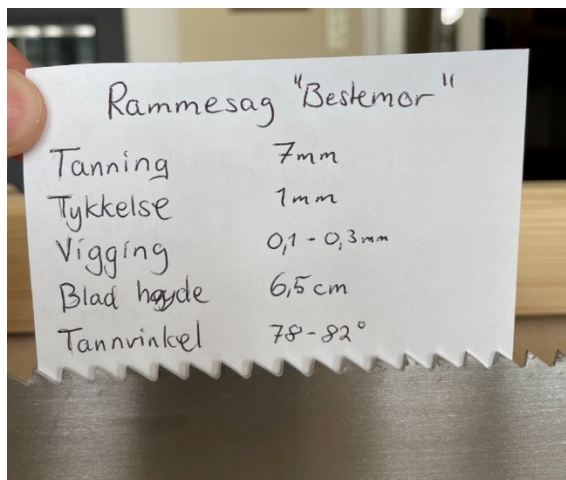 Rammesag "Bestemor"
Tanning 7mm
Tykkelse 1mm
Vigging 0,1 - 0,3mm
Blad høyde 6,5cm
Tannvinkel 78-82°